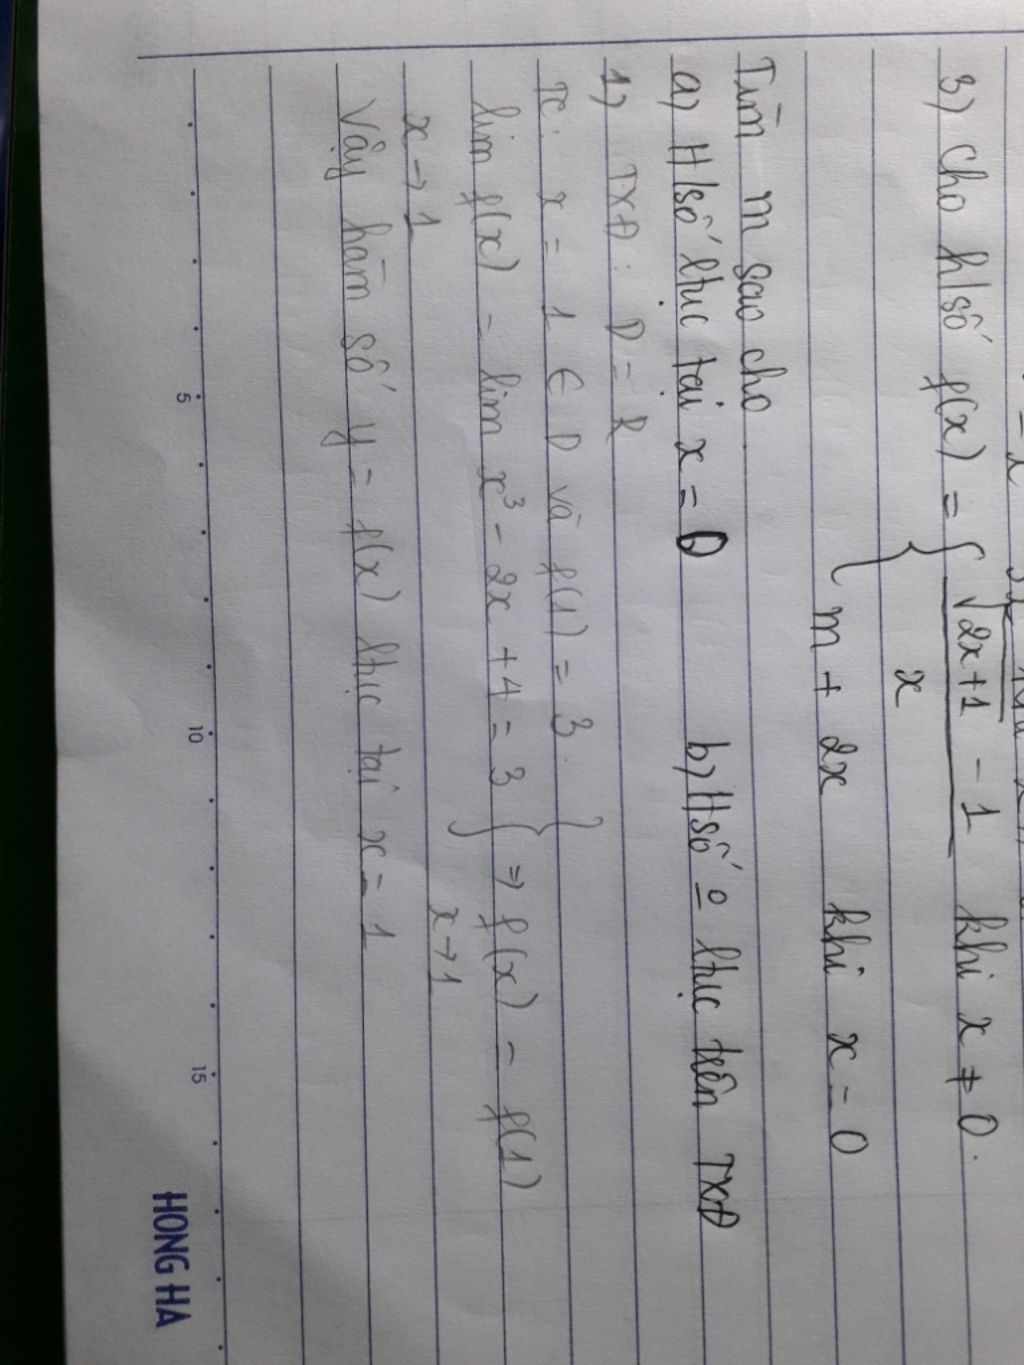 3) Cho h/số f(x) = { √2x+1 - 1 khi x ≠ 0.
x
m + 2x khi x = 0
Tìm m sao cho
a) H/số ltục tại x = 0 b) H số 0 ltục trên TXĐ
1) TXĐ: D = R
TC: x = 1 ∈ D và f(1) = 3.
lim f(x) = lim x³ - 2x + 4 = 3 } => f(x) = f(1)
x→1 x→1
Vậy hàm số y = f(x) ltục tại x = 1
5 10 15
HONG HA